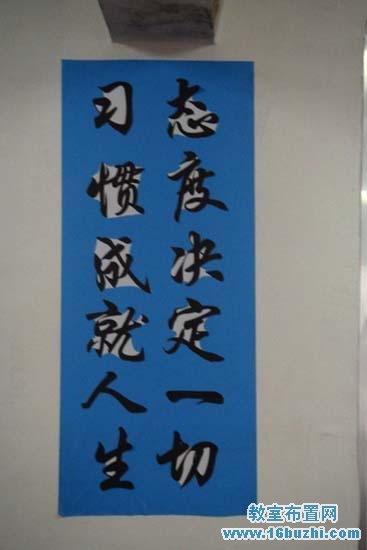 态度决定一切
习惯成就人生
教室布置网
www.16buzhi.com